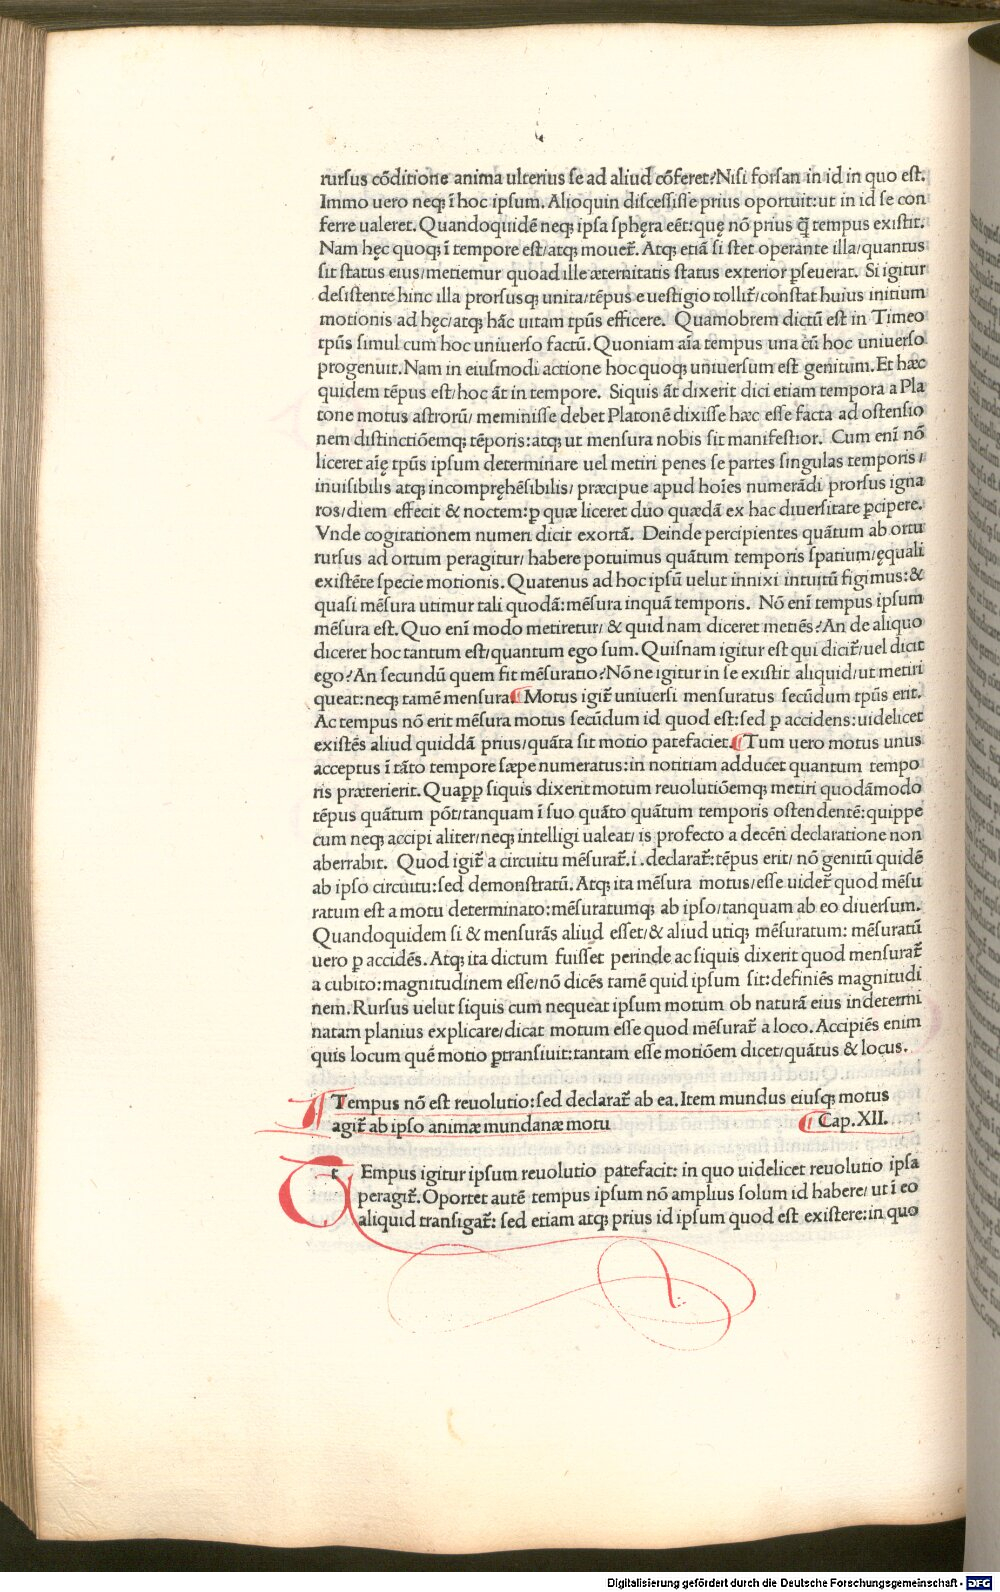 rursus cõditione anima ulterius se ad aliud cõferet?Nisi forsan in id in quo est.
Immo uero neqꝫ ĩ hoc ipsum. Alioquin discessisse prius oportuit:ut in id se con
ferre ualeret. Quandoquidẽ neqꝫ ipsa sphęra eẽt:quę nõ prius q̃ tempus existit.
Nam hęc quoqꝫ ĩ tempore est/atqꝫ mouet᷑. Atqꝫ etiã si stet operante illa/quantus
sit status eius/metiemur quoad ille æternitatis status exterior ꝑseuerat. Si igitur
desistente hinc illa prorsusqꝫ unita/tẽpus e uestigio tollit᷑/constat huius initium
motionis ad hęc/atqꝫ hãc uitam tp̃us efficere. Quamobrem dictũ est in Timeo
tp̃us simul cum hoc uniuerso factũ. Quoniam aĩa tempus una cũ hoc uniuerso
progenuit. Nam in eiusmodi actione hoc quoqꝫ uniuersum est genitum. Et hæc
quidem tẽpus est/hoc ãt in tempore. Siquis ãt dixerit dici etiam tempora a Pla
tone motus astrorũ/ meminisse debet Platonẽ dixisse hæc esse facta ad ostensio
nem distinctiõemqꝫ tẽporis:atqꝫ ut mensura nobis sit manifestior. Cum enĩ nõ
liceret aĩę tp̃us ipsum determinare uel metiri penes se partes singulas temporis/
inuisibilis atqꝫ incompręhẽsibilis/ præcipue apud hoĩes numerãdi prorsus igna
ros/diem effecit & noctem:ꝑ quæ liceret duo quædã ex hac diuersitate ꝑcipere.
Vnde cogitationem numeri dicit exortã. Deinde percipientes quãtum ab ortu
rursus ad ortum peragitur/ habere potuimus quãtum temporis spatium/ęquali
existẽte specie motionis. Quatenus ad hoc ipsũ uelut innixi intuitũ figimus:&
quasi mẽsura utimur tali quodã:mẽsura inquã temporis. Nõ enĩ tempus ipsum
mẽsura est. Quo enĩ modo metiretur/ & quid nam diceret metiẽs?An de aliquo
diceret hoc tantum est/quantum ego sum. Quisnam igitur est qui dicit᷑/uel dicit
ego?An secundũ quem fit mẽsuratio?Nõne igitur in se existit aliquid/ut metiri
queat:neqꝫ tamẽ mensura¶Motus igit᷑ uniuersi mensuratus secũdum tp̃us erit.
Ac tempus nõ erit mẽsura motus secũdum id quod est:sed ꝑ accidens:uidelicet
existẽs aliud quiddã prius/quãta sit motio patefaciet.¶Tum uero motus unus
acceptus ĩ tãto tempore sæpe numeratus:in notitiam adducet quantum tempo
ris præterierit. Quaꝓꝑ siquis dixerit motum reuolutiõemqꝫ metiri quodãmodo
tẽpus quãtum põt/tanquam ĩ suo quãto quãtum temporis ostendentẽ:quippe
cum neqꝫ accipi aliter/neqꝫ intelligi ualeat/ is profecto a decẽti declaratione non
aberrabit. Quod igit᷑ a circuitu mẽsurat᷑.i.declarat᷑:tẽpus erit/ nõ genitũ quidẽ
ab ipso circuitu:sed demonstratũ. Atqꝫ ita mẽsura motus/esse uidet᷑ quod mẽsu
ratum est a motu determinato:mẽsuratumqꝫ ab ipso/tanquam ab eo diuersum.
Quandoquidem si & mensurãs aliud esset/& aliud utiqꝫ mẽsuratum: mẽsuratũ
uero ꝑ accidẽs. Atqꝫ ita dictum fuisset perinde ac siquis dixerit quod mensurat᷑
a cubito:magnitudinem esse/nõ dicẽs tamẽ quid ipsum sit:definiẽs magnitudi
nem. Rursus uelut siquis cum nequeat ipsum motum ob naturã eius indetermi
natam planius explicare/dicat motum esse quod mẽsurat᷑ a loco. Accipiẽs enim
quis locum quẽ motio ꝑtransiuit:tantam esse motiõem dicet/quãtus & locus.
¶Tempus nõ est reuolutio:sed declarat᷑ ab ea. Item mundus eiusqꝫ motus
agit᷑ ab ipso animæ mundanæ motu ¶Cap.XII.
Tt Empus igitur ipsum reuolutio patefacit: in quo uidelicet reuolutio ipsa
peragit᷑. Oportet autẽ tempus ipsum nõ amplius solum id habere/ ut ĩ eo
aliquid transigat᷑: sed etiam atqꝫ prius id ipsum quod est existere:in quo
Digitalisierung gefördert durch die Deutsche Forschungsgemeinschaft - DFG